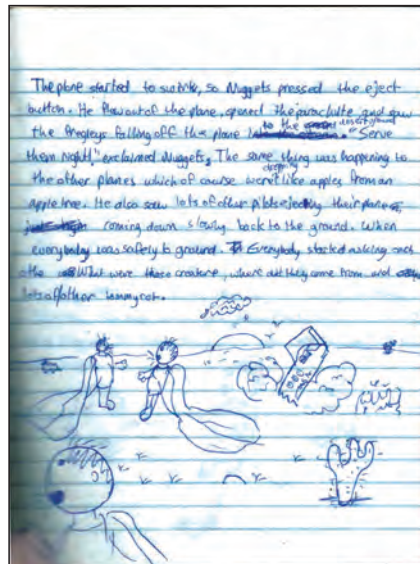 The plane started to so Nuggets pressed the eject
button. He flew out of the plane, opened the parachute and saw
the falling off the plane to the desert ground. "Serve
them right!" exclaimed Nuggets. The same thing was happening to
the other planes which of course were dropping like apples from an
apple tree. He also saw lots of other pilots ejecting their planes,
coming down slowly back to the ground. When
everybody was safely to ground. Everybody started asking each
othe What were those creature, where did they come from and
lots of other